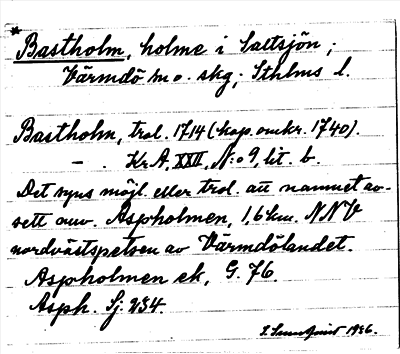 * Bastholm, holme i Saltsjön;
Värmdö m. o. skg; Sthlms l.
Bastholm, trol. 1714 (kop. omkr. 1740).
– . Kr. A, XXII, N:o 9, lit. b.
Det syns möjl. eller trol. att namnet av-
sett omv. Aspholmen, 1,6 km. NNV
nordvästspetsen av Värmdölandet.
Aspholmen ek, G. 76.
Asph. Sj. 234.
1936.